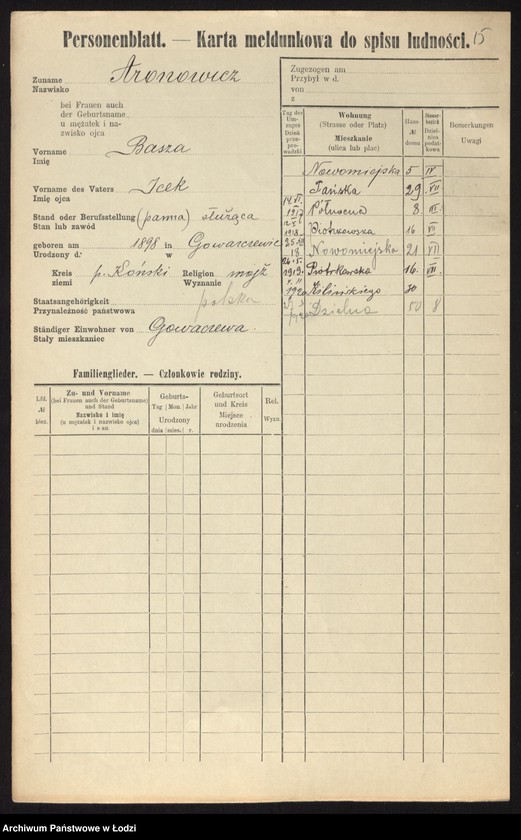 Personenblatt. — Karta meldunkowa do spisu ludności. 15
Zuname Aronowicz
Nazwisko
bei Frauen auch
der Geburtsname
u mężatek i na-
zwisko ojca
Vorname Basza
Imię
Vorname des Vaters Icek
Imię ojca
Stand oder Berufsstellung (panna) służąca
Stan lub zawód
geboren am 1898 in Gowarczewie
Urodzony d. w
Kreis p. Koński Religion mojż
ziemi Wyznanie
Staatsangehörigkeit polska
Przynależność państwowa
Ständiger Einwohner von Gowaczewa
Stały mieszkaniec
Zugezogen am
Przybył w d.
von
z
Tag des Um-
zuges
Dzień
prze-
prowadzki
Wohnung
(Strasse oder Platz)
Mieszkanie
(ulica lub plac)
Haus-
№
domu
Steuer-
bezirk
Dziel-
nica
podat-
kowa
Bemerkungen
Uwagi
Nowomiejska 5 IV
Pańska 29 VII
1917 Północna 8 III
1918 Piotrkowska 16 VII
18 Nowomiejska 21 VII
1919 Piotrkowska 16 VII
1920 Kilińskiego 30
Dzielna 50 8
Familienglieder. — Członkowie rodziny.
Lfd.
№
bież.
Zu- und Vorname
(bei Frauen auch der Geburtsname)
und Stand
Nazwisko i imię
(u mężatek i nazwisko ojca)
i stan
Geburts-
Tag Mon. Jahr
Urodzony
dnia mies. r.
Geburtsort
und Kreis
Miejsce
urodzenia
Rel.
Wyzn.
Archiwum Państwowe w Łodzi